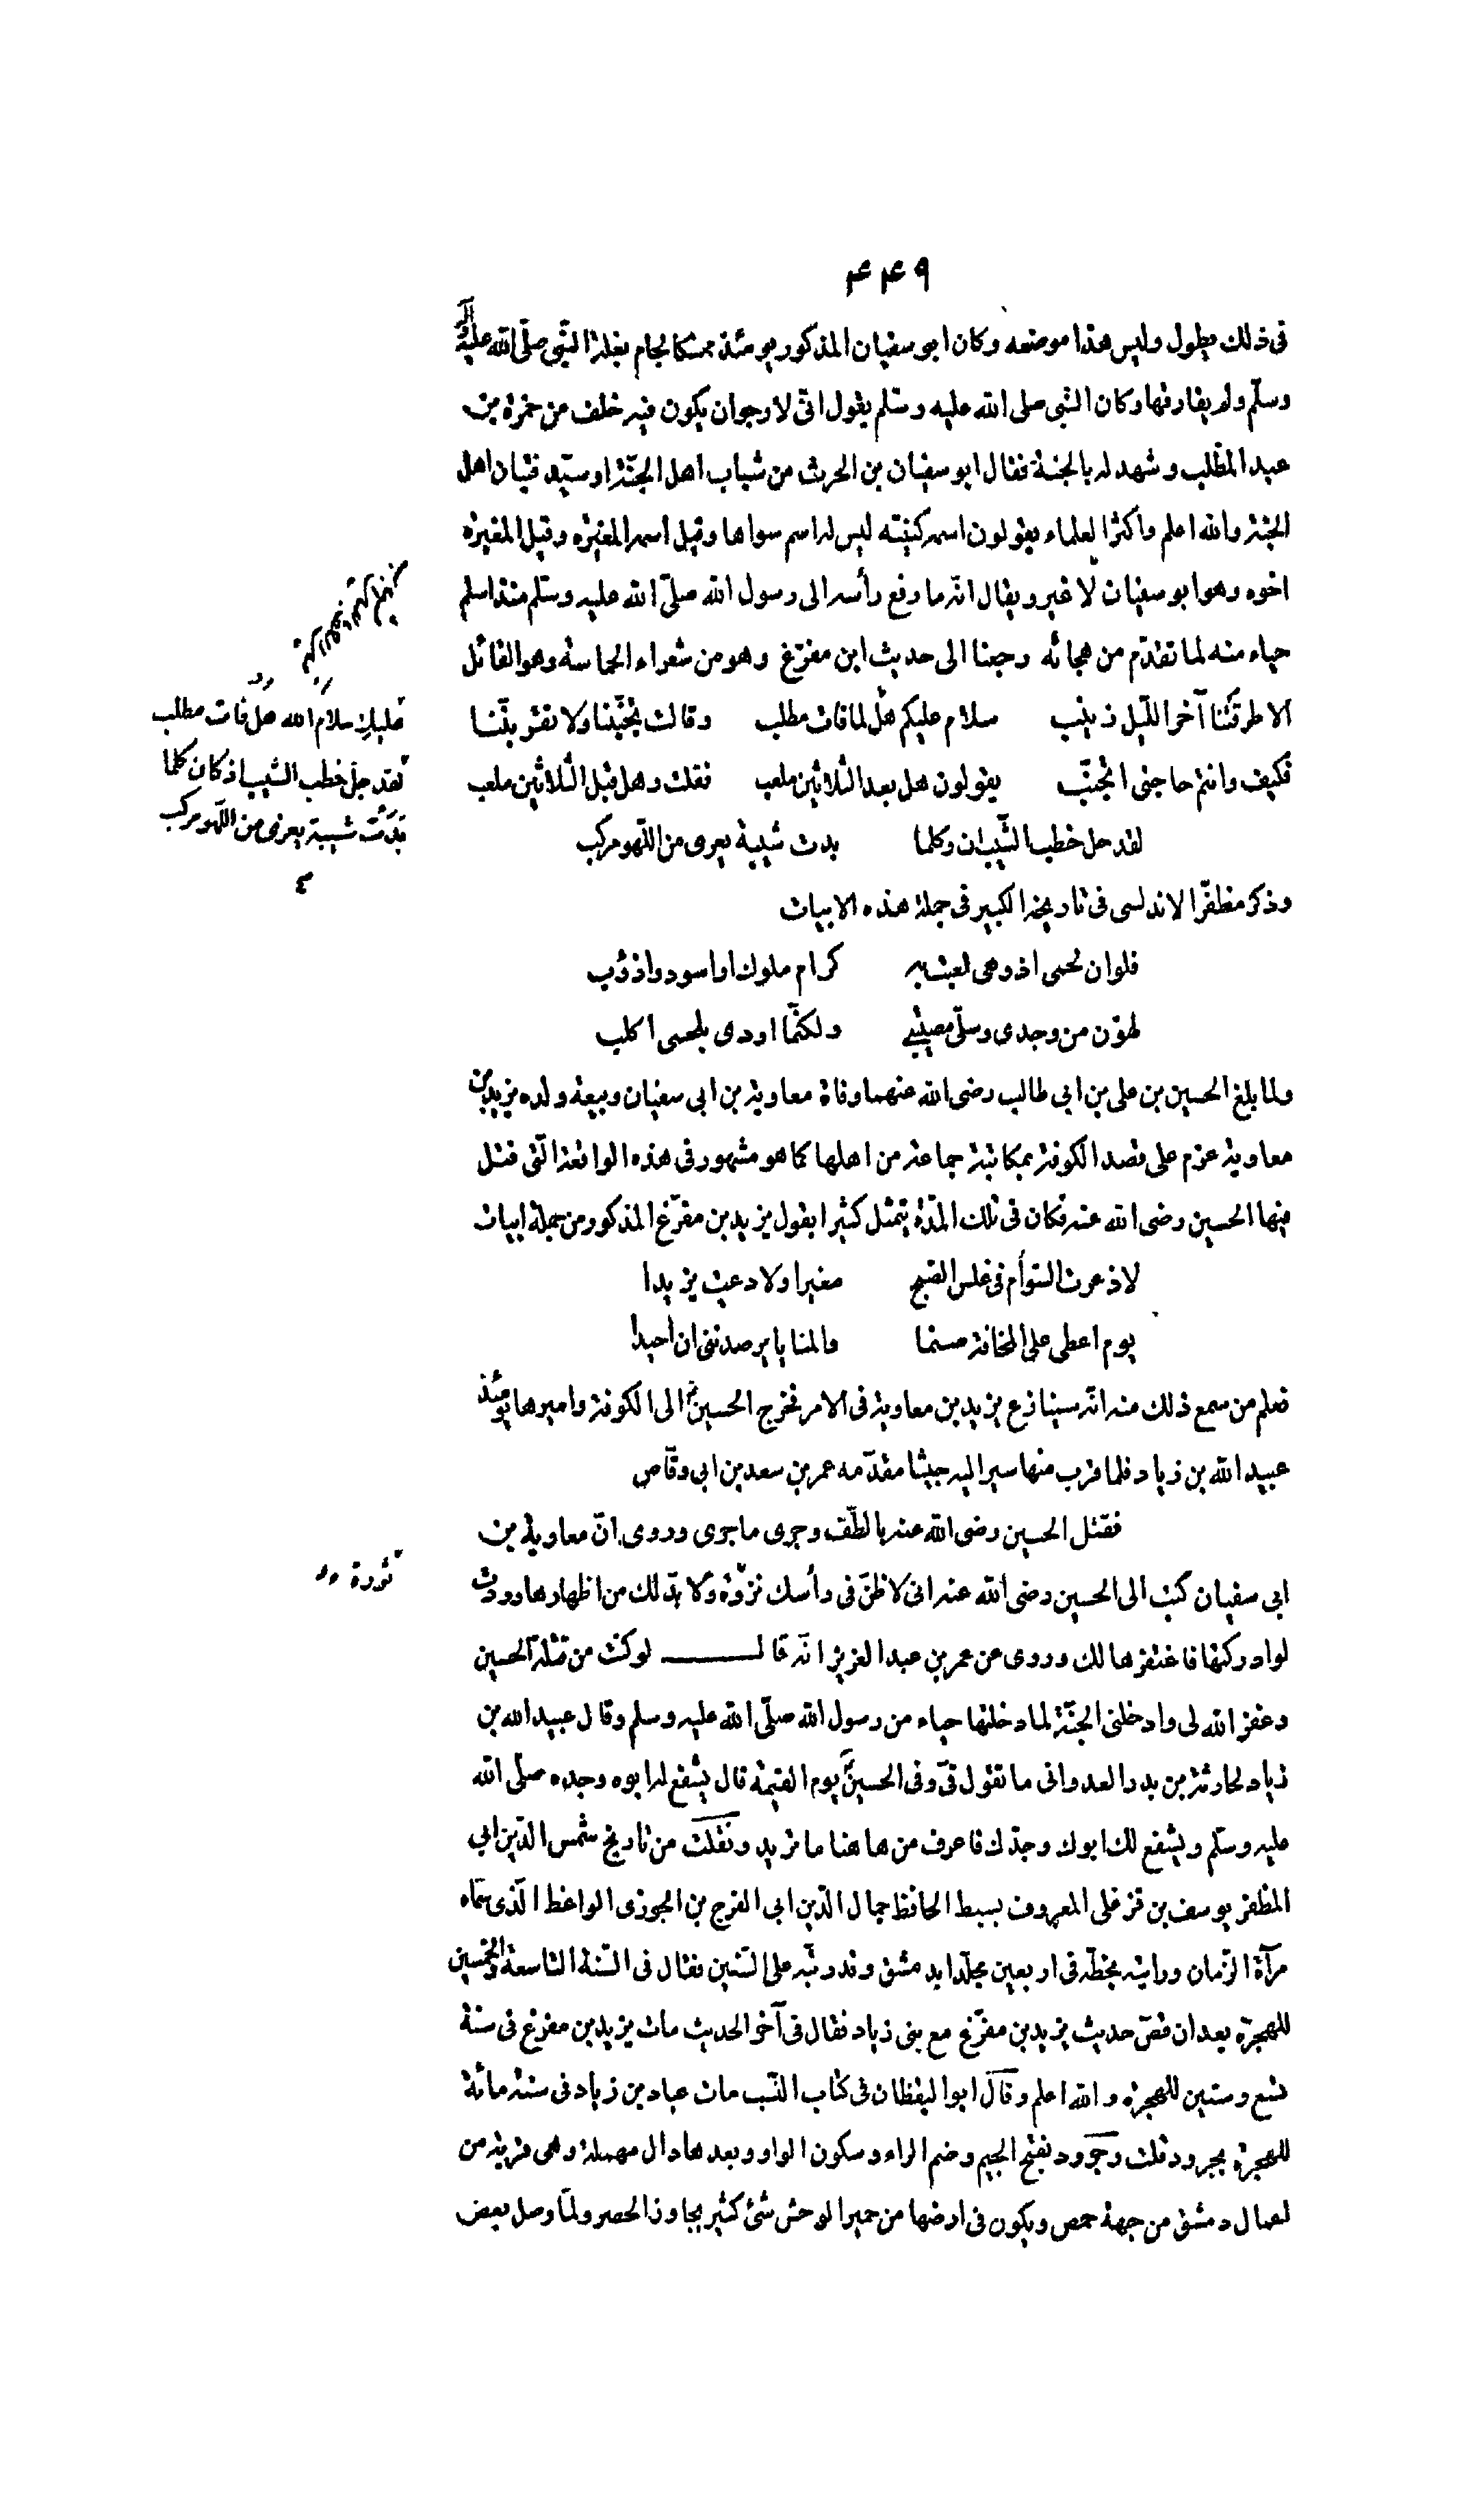 ۴۴۹
فى ذلك يطول وليس هذا موضعه وكان ابو سفيان المذكور يومئذ ممسكا لجام بغلة النّبى صلّى الله عليه وآله
وسلّم ولم يفارقها وكان النّبى صلى الله عليه وسلّم يقول انّى لارجوان يكون فيه خلف من حمزة بن
عبد المطّلب وشهد له بالجنة فقال ابو سفيان بن الحرث من شباب اهل الجنّة او سيّد فتيان اهل
الجنّة والله اعلم واكثر العلماء يقولون اسمه كنيته ليس له اسم سواها وقيل اسمه المغيرة وقيل المغيرة
اخوه وهو ابو سفيان لا غير ويقال انّه ما رفع رأسه الى رسول الله صلّى الله عليه وسلّم منذ اسلم
حياء منه لما تقدّم من هجائه رجعنا الى حديث ابن مفرّغ وهو من شعراء الحماسة وهو القائل
الا طرقتنا آخر اللّيل زينب سلام عليكم هل لما فات مطلب وقالت تجنّبنا ولا تقربنّنا
فكيف وانتم حاجتى اتجنّب يقولون هل بعد الثّلاثين ملعب فقلت وهل قبل الثّلاثين ملعب
لقد جل خطب الشّيب ان وكلما بدت شيبة يعرى من اللّهو مركب
عليك سلام الله هل فات مطلب
لقد جلّ خطب الشيب اذ كان كلما
بدت شيبة يعرى من اللّهو مركب
وذكر مظفّر الاندلسى فى تاريخه الكبير فى جملة هذه الابيات
فلو ان لحمى اذ وهى لعبت به كرام ملوك او اسود واذؤب
لهوّن من وجدى وسلّى مصيبتى ولكنّما اودى بلحمى اكلب
ولما بلغ الحسين بن على بن ابى طالب رضى الله عنهما وفاة معاوية بن ابى سفيان وبيعة ولده يزيد بن
معاوية عزم على قصد الكوفة بمكاتبة جماعة من اهلها كما هو مشهور فى هذه الواقعة الّتى قتل
فيها الحسين رضى الله عنه فكان فى تلك المدّة يتمثل كثيرا بقول يزيد بن مفرّغ المذكور من جملة ابيات
لا ذعرت السّوأم فى غلس الصّبح مغيرا ولا دعيت يزيدا
يوم اعطى على المخافة ضيما والمنايا يرصدننى ان احيدا
فعلم من سمع ذلك منه انّه سينازع يزيد بن معاوية فى الامر فخرج الحسين الى الكوفة واميرها يومئذ
عبيد الله بن زياد فلما قرب منها سير اليه جيشا مقدّمه عمر بن سعد بن ابى وقّاص
فقتل الحسين رضى الله عنه بالطّف وجرى ما جرى وروى انّ معاوية بن
ابى سفيان كتب الى الحسين رضى الله عنه انى لاظنّ فى رأسك نزوة ولا بدّ لك من اظهارها ووددت
ثورة
لو ادركتها فاغتفرها لك وروى عن عمر بن عبد العزيز انّه قال لو كنت من قتلة الحسين
وغفر الله لى وادخلنى الجنّة لما دخلتها حياء من رسول الله صلّى الله عليه وسلم وقال عبيد الله بن
زياد لحارثة بن بدر العدوانى ما تقول فىّ وفى الحسين يوم القيمة قال يشفع له ابوه وجده صلّى الله
عليه وسلّم ويشفع لك ابوك وجدّك فاعرف من هاهنا ما تريد ونقلت من تاريخ شمس الدّين ابى
المظفر يوسف بن قزغلى المعروف بسبط الحافظ جمال الدّين ابى الفرج بن الجوزى الواعظ الّذى سمّاه
مرآة الزّمان ورايته بخطّه فى اربعين مجلّدا بدمشق وقد رتّبه على السّنين فقال فى السّنة التاسعة والخمسين
للهجرة بعد ان قصّ حديث يزيد بن مفرّغ مع بنى زياد فقال فى آخر الحديث مات يزيد بن مفرغ فى سنة
تسع وستين للهجرة والله اعلم وقال ابو اليقظان فى كتاب النّسب مات عباد بن زياد فى سنة مائة
للهجرة بجرود قلت وجرود بفتح الجيم وضم الراء وسكون الواو وبعدها دال مهملة وهى قرية من
اعمال دمشق من جهة حمص ويكون فى ارضها من حمير الوحش شئ كثير يجاوز الحصر ولمّا وصل بعض